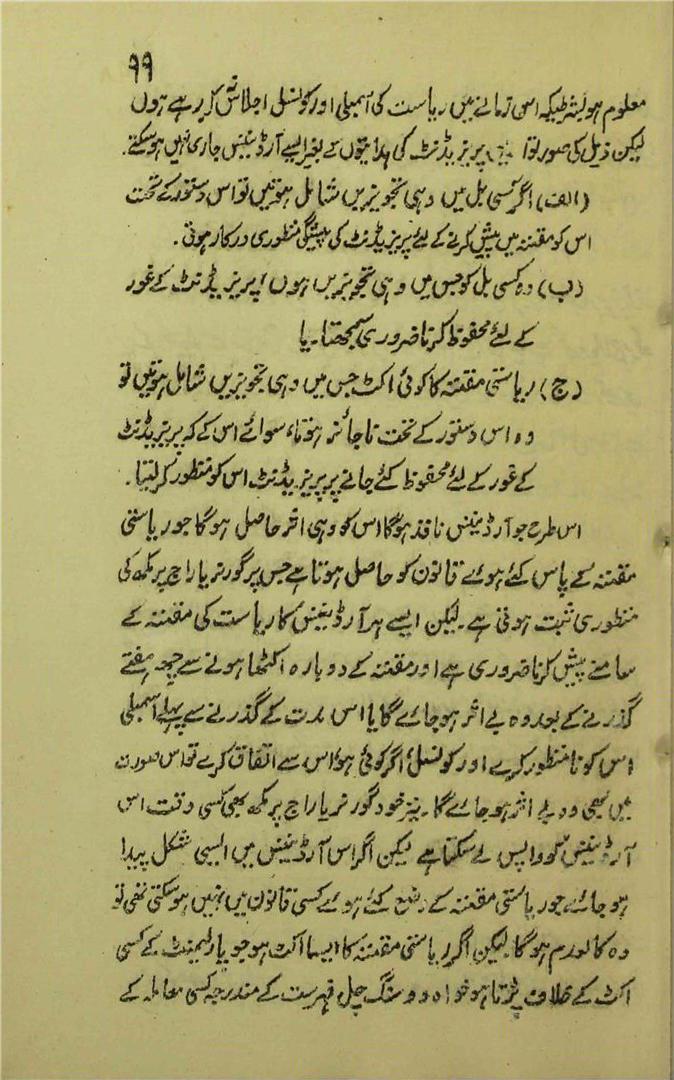 ۹۹
معلوم ہو بشرطیکہ اس زمانے میں ریاست کی اسمبلی اور کونسل اجلاس نہ کر رہے ہوں
لیکن ذیل کی صورتوں میں پریزیڈنٹ کی ہدایتوں کے بغیر ایسے آرڈیننس جاری نہیں ہو سکتے۔
(الف) اگر کسی بل میں وہی تجویزیں شامل ہوتیں تو اس دستور کے تحت
اس کو مقننہ میں پیش کرنے کے لئے پریزیڈنٹ کی پیشگی منظوری درکار ہوتی۔
(ب) وہ کسی بل کو جس میں وہی تجویزیں ہوں پریزیڈنٹ کے غور
کے لئے محفوظ کرنا ضروری سمجھتا۔ یا
(ج) ریاستی مقننہ کا کوئی اکٹ جس میں وہی تجویزیں شامل ہوتیں تو
وہ اس دستور کے تحت ناجائز ہوتا، سوائے اس کے کہ پریزیڈنٹ
کے غور کے لئے محفوظ کئے جانے پر پریزیڈنٹ اس کو منظور کر لیتا۔
اس طرح جو آرڈیننس نافذ ہوگا اس کو وہی اثر حاصل ہوگا جو ریاستی
مقننہ کے پاس کئے ہوئے قانون کو حاصل ہوتا ہے جس پر گورنر یا راج پرمکھ کی
منظوری ثبت ہوتی ہے۔ لیکن ایسے ہر آرڈیننس کا ریاست کی مقننہ کے
سامنے پیش کرنا ضروری ہے اور مقننہ کے دوبارہ اکٹھا ہونے سے چھ ہفتے
گذرنے کے بعد وہ بے اثر ہو جائے گا یا اس مدت کے گذرنے سے پہلے اسمبلی
اس کو نامنظور کرے اور کونسل اگر کوئی ہو اس سے اتفاق کرے تو اس صورت
میں بھی وہ بے اثر ہو جائے گا۔ نیز خود گورنر یا راج پرمکھ بھی کسی وقت اس
آرڈیننس کو واپس لے سکتا ہے لیکن اگر اس آرڈیننس میں ایسی شکل پیدا
ہو جائے جو ریاستی مقننہ کے وضع کئے ہوئے کسی قانون میں نہیں ہو سکتی تھی تو
وہ کالعدم ہوگا۔ لیکن اگر ریاستی مقننہ کا ایسا اکٹ ہو جو پارلیمنٹ کے کسی
اکٹ کے خلاف پڑتا ہو خواہ وہ سنگ چل فہرست کے مندرجہ کسی معاملہ کے